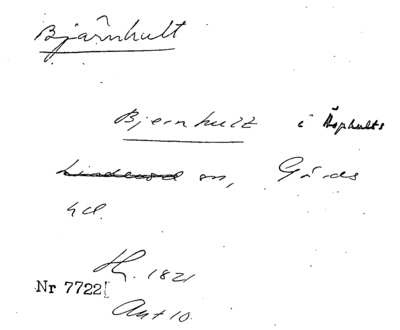 Bjärnhult
Bjernhult i Äsphults
Linderöd sn, Gärds
hd.
H. 1821
Nr 7722
Ant 10.